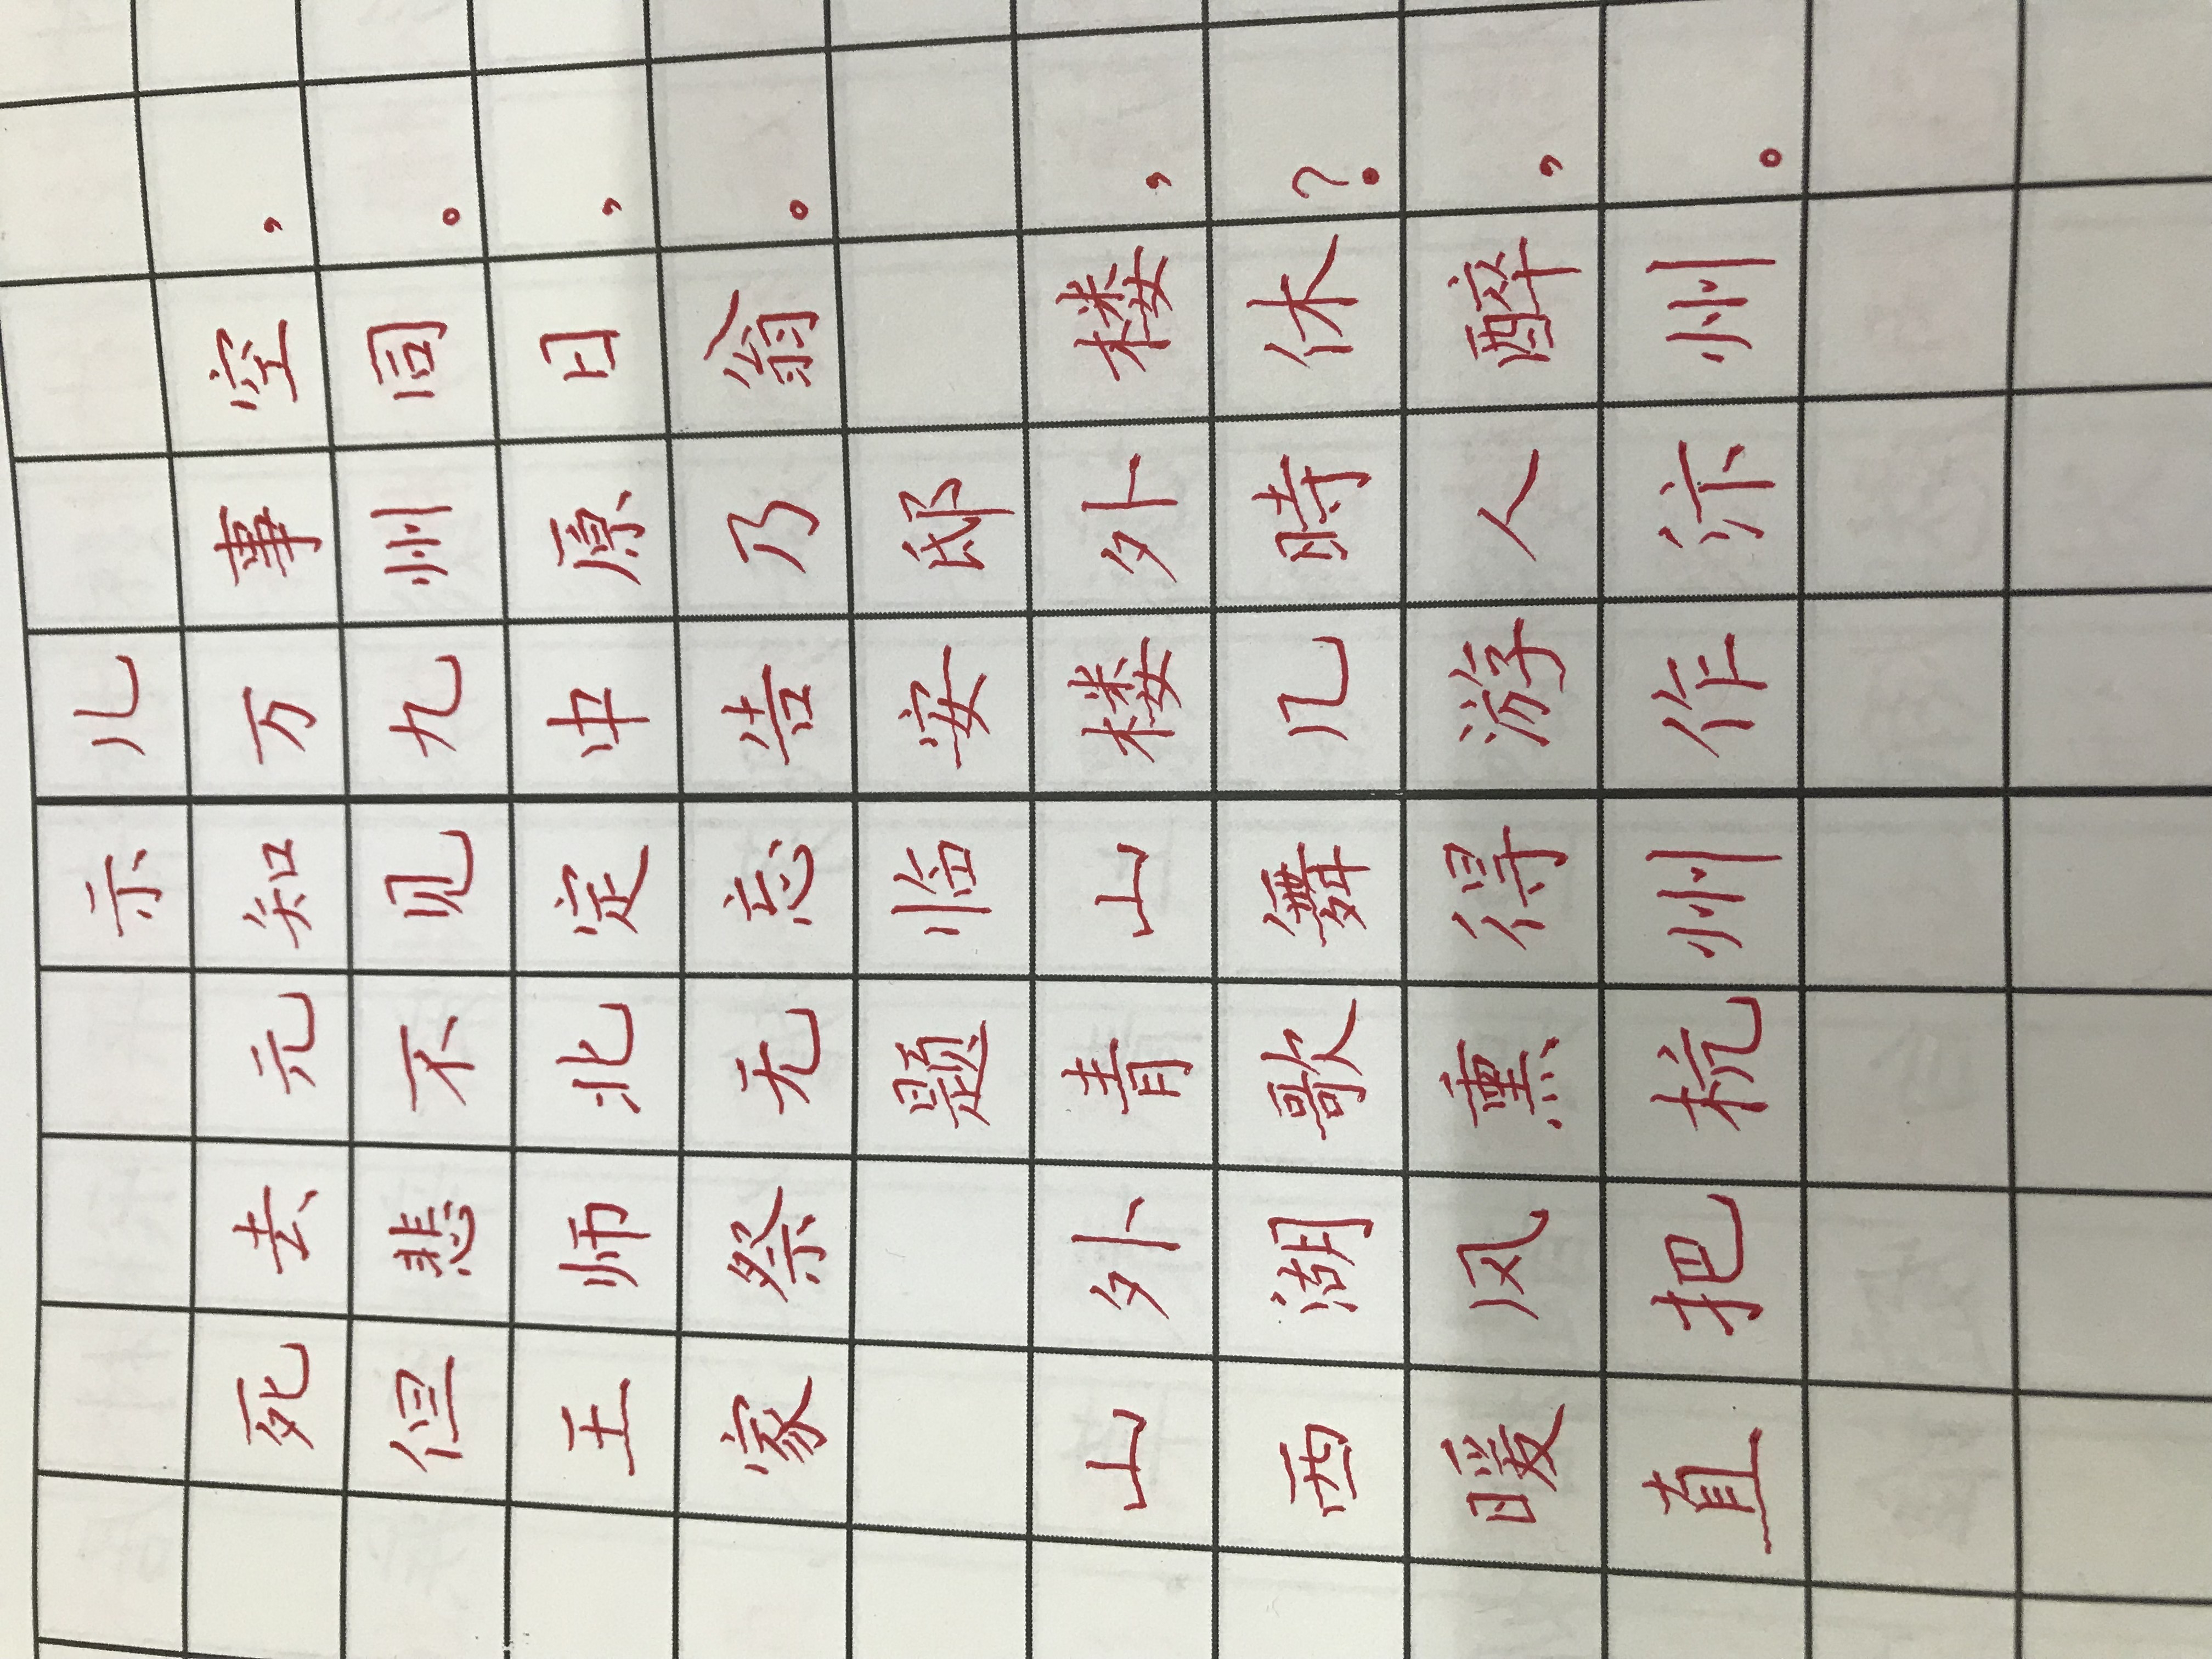 示儿
死去元知万事空，
但悲不见九州同。
王师北定中原日，
家祭无忘告乃翁。
题临安邸
山外青山楼外楼，
西湖歌舞几時休？
暖风熏得游人醉，
直把杭州作汴州。